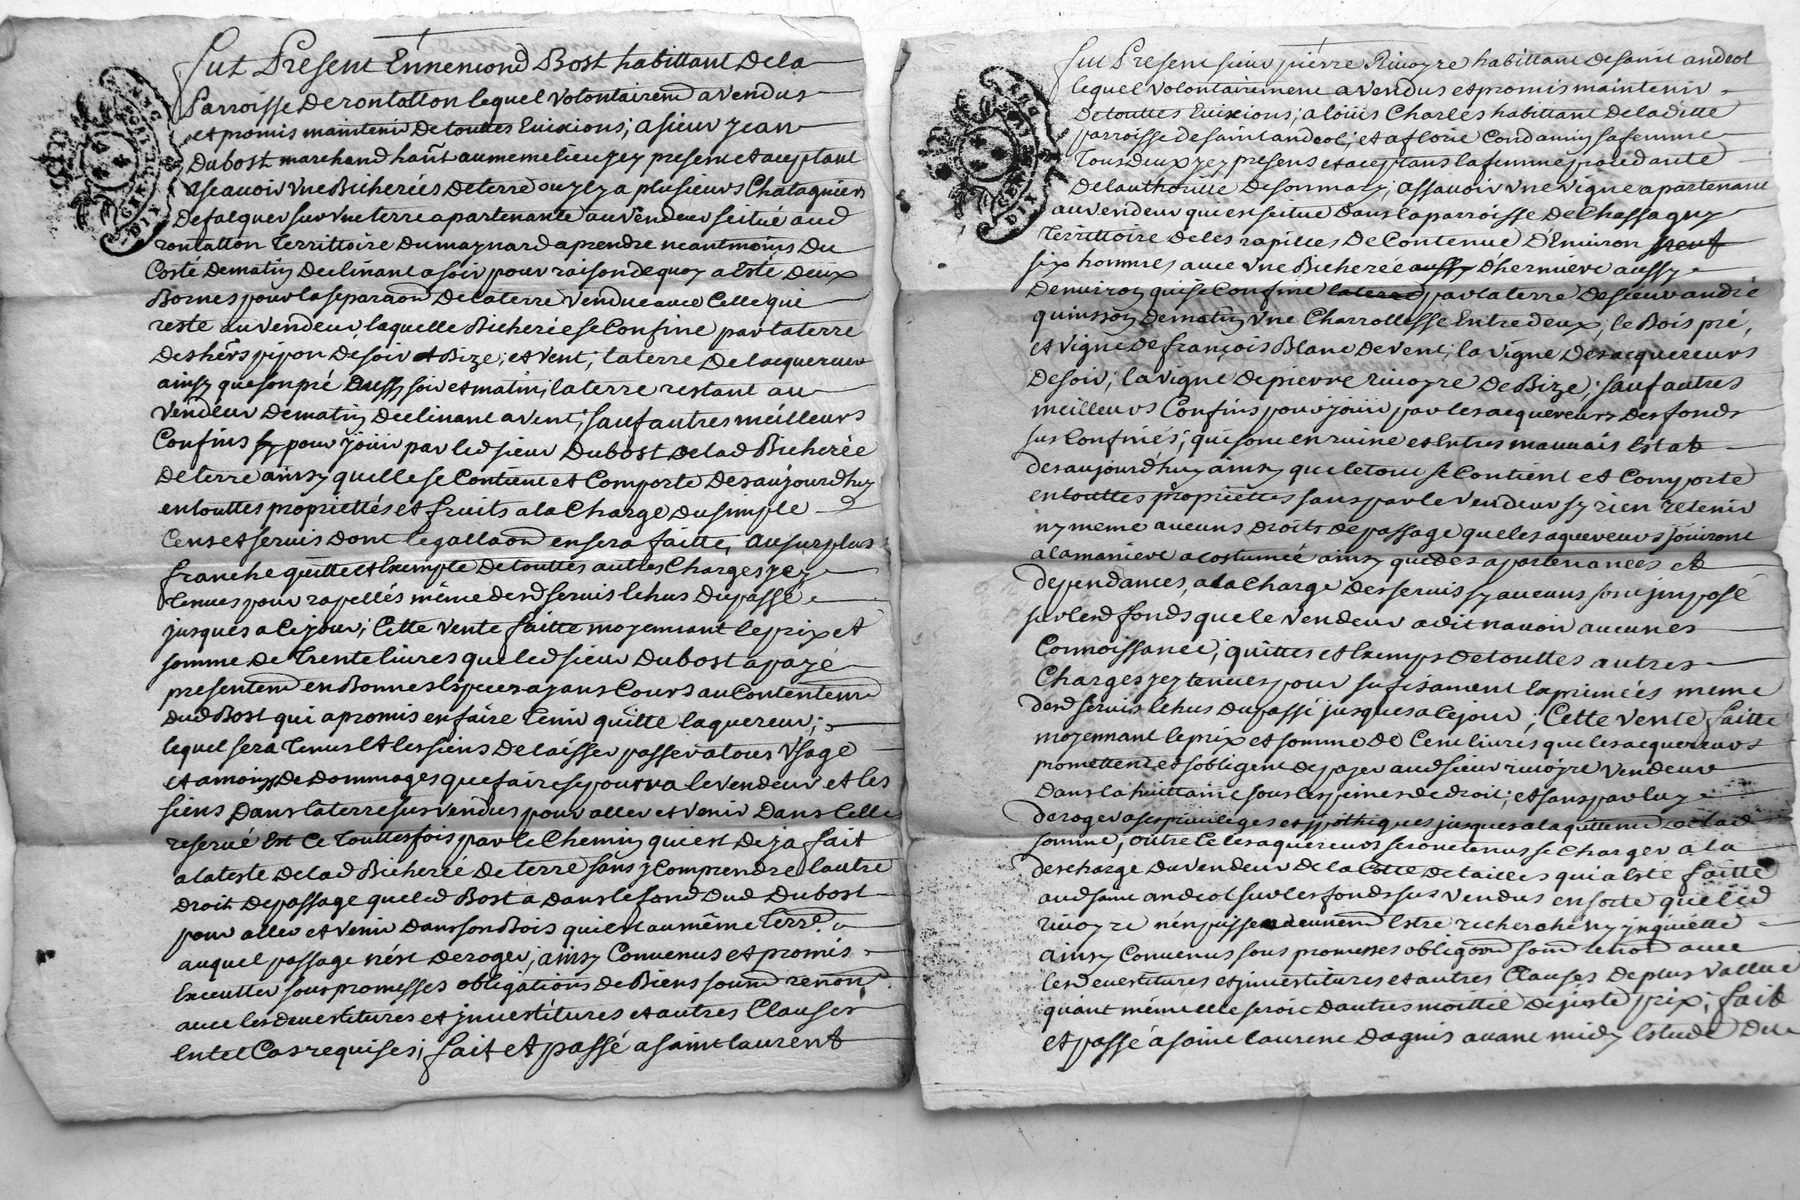 fut Present Ennemond Bost habittant de la
Parroisse de rontallon lequel volontairemd a vendus
et promis maintenir de touttes Euixions; a sieur jean
dubost marchand hañt au meme lieu jcy present et aceptant
ascauoir vne Bicherées de terre ou jl y a plusieurs Chatagniers
defalquer sur vne terre apartenante au vendeur scitué aud
rontallon Territtoire du maynard a prendre neantmoins du
Costé de matin declinant a soir pour raison de quoy a Esté deux
Bornes pour la separaon de la terre vendue auec Celle qui
reste au vendeur laquelle Bicherée se Confine par la terre
des hérs pipon de soir et Bize; et vent; la terre de lacquereur
ainsy que son pré soir et matin; la terre restant au
vendeur de matin declinant a vent; sauf autres meilleurs
Confins sy pour jouir par led sieur dubost de lad Bicherée
de terre ainsy quelle se Contient et Comporte des aujourdhuy
en touttes proprietés et fruits a la Charge du simple
Cens et seruis dont legallaon en sera faitte, au surplus
franche quitte et Exempte de touttes autres Charges jcy
tenues pour rapellés même desd seruis Echus du passé
jusques a Ce jour; Cette vente faitte moyennant le prix et
somme de Trente liures que led sieur dubost a payé
presentemd en Bonnes Especes ayans Cours au Contentemd
dud Bost qui a promis en faire Tenir quitte laquereur;
lequel sera Tenus Et les siens de laisser passer a tous vsage
et a moins de dommages que faire se pourra le vendeur et les
siens dans la terre sus vendus pour aller et venir dans Celle
reserué Est Ce Touttesfois par le Chemin qui est deja fait
a la teste de lad Bicherée de terre sans y Comprendre lautre
droit de passage que led Bost a dans le fond dud dubost
pour aller et venir dans son Bois qui est au même Terrd.
auquel passage nést deroger; ainsy Conuenus et promis
Executter sous promesses obligations de Biens soumd renond
auec les deuestitures et jnuestitures et autres Clauses
En tel Cas requises; fait et passé a saint laurent
fut Present sieur pierre Riuoyre habittant de saint andeol
lequel volontairement a vendus et promis maintenir
de touttes Euixions; a louis Charles habittant de laditte
parroisse de saint andeol; et a florie Condamin sa femme
Tous deux jcy presens et aceptans la femme procedante
de lauthorité de son mary; assauoir vne vigne apartenant
au vendeur qui est scitue dans la parroisse de Chassagny
Territtoire de les rapilles de Contenue dEnviron
six hommes auec vne Bicherée aussy dhermiere aussy
denuiron qui se Confine par la terre de sieur andré
quinson de matin vne Charrollesse Entre deux; le Bois pré,
et vigne de françois Blanc de vent; la vigne des acquereurs
de soir; la vigne de pierre riuoyre de Bize; sauf autres
meilleurs Confins pour jouir par les acquereurs des fonds
sus Confinés; qui sont en ruine et En tres mauuais Estat
des aujourdhuy ainsy que le tout se Contient et Comporte
en touttes proprietés sans par le vendeur sy rien retenir
ny meme aucuns droits de passage que les aquereurs jouiront
a la maniere acostumée ainsy que des apartenances et
dependances, a la Charge des seruis sy aucuns sont jmposé
sur lesd fonds que le vendeur a dit nauoir aucunes
Connoissance; quittes et Exemps de touttes autres
Charges jcy tenues pour sufisament Exprimées meme
desd seruis Echus du passé jusques a Ce jour; Cette vente faitte
moyennant le prix et somme de Cent liures que les acquereurs
promettent et sobligent de payer aud sieur riuoyre vendeur
dans la huittaine sous les peines de droit; et sans par luy
deroger a ses priuileges et ypothiques jusques a la quittemd de lad
somme; outre Ce les aquereurs seront tenus se Charger a la
descharge du vendeur de la Cotte de tailles qui a Esté faitte
aud saint andeol sur les fonds sus vendus en sorte que led
riuoyre nén puisse aucunemd Estre recherché ny jnquiétté
ainsy Conuenus sous promesses obligaon soumd renond auec
les deuestitures et jnuestitures et autres Clauses de plus vallue
quant même elle seroit dautres moittié de juste prix; fait
et passé à saint laurent dagnis auant midy Estude du